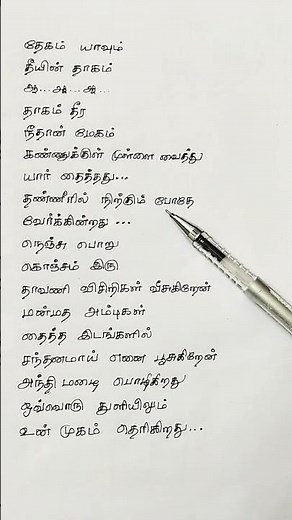 தேகம் யாவும்
தீயின் தாகம்
ஆ... ஆ... ஆ...
தாகம் தீர
நீதான் மேகம்
கண்ணுக்குள் முள்ளை வைத்து
யார் தைத்தது...
தண்ணீரில் நிற்கும் போதே
வேர்க்கின்றது...
நெஞ்சு பொறு
கொஞ்சம் இரு
தாவணி விசிறிகள் வீசுகிறேன்
மன்மத அம்புகள்
தைத்த இடங்களில்
சந்தனமாய் எனை பூசுகிறேன்
அந்தி மழை பொழிகிறது
ஒவ்வொரு துளியிலும்
உன் முகம் தெரிகிறது...